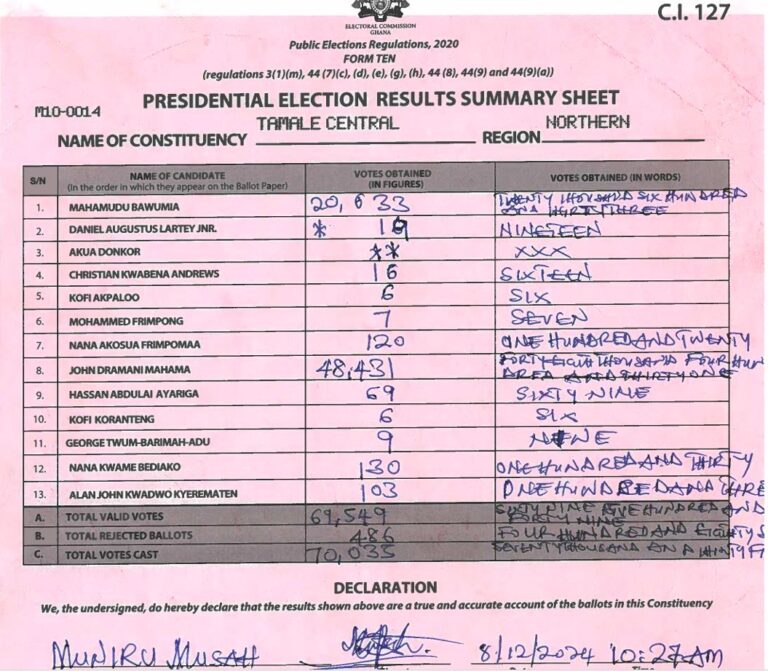 C.I. 127
ELECTORAL COMMISSION
GHANA
Public Elections Regulations, 2020
FORM TEN
(regulations 3(1)(m), 44 (7)(c), (d), (e), (g), (h), 44 (8), 44(9) and 44(9)(a))
PRESIDENTIAL ELECTION RESULTS SUMMARY SHEET
M10-0014
NAME OF CONSTITUENCY TAMALE CENTRAL REGION NORTHERN
S/N NAME OF CANDIDATE (In the order in which they appear on the Ballot Paper) VOTES OBTAINED (IN FIGURES) VOTES OBTAINED (IN WORDS)
1. MAHAMUDU BAWUMIA 20,633 TWENTY THOUSAND SIX HUNDRED
AND THIRTY THREE
2. DANIEL AUGUSTUS LARTEY JNR. * 19 NINETEEN
3. AKUA DONKOR ** XXX
4. CHRISTIAN KWABENA ANDREWS 16 SIXTEEN
5. KOFI AKPALOO 6 SIX
6. MOHAMMED FRIMPONG 7 SEVEN
7. NANA AKOSUA FRIMPOMAA 120 ONE HUNDRED AND TWENTY
8. JOHN DRAMANI MAHAMA 48,431 FORTY EIGHT THOUSAND FOUR HUN
DRED AND THIRTY ONE
9. HASSAN ABDULAI AYARIGA 69 SIXTY NINE
10. KOFI KORANTENG 6 SIX
11. GEORGE TWUM-BARIMAH-ADU 9 NINE
12. NANA KWAME BEDIAKO 130 ONE HUNDRED AND THIRTY
13. ALAN JOHN KWADWO KYEREMATEN 103 ONE HUNDRED AND THRE
A. TOTAL VALID VOTES 69,549 SIXTY NINE FIVE HUNDRED AND
FORTY NINE
B. TOTAL REJECTED BALLOTS 486 FOUR HUNDRED AND EIGHTY S
C. TOTAL VOTES CAST 70,035 SEVENTY THOUSAND AND THIRTY FI
DECLARATION
We, the undersigned, do hereby declare that the results shown above are a true and accurate account of the ballots in this Constituency
MUNIRU MUSAH 8/12/2024 10:27AM